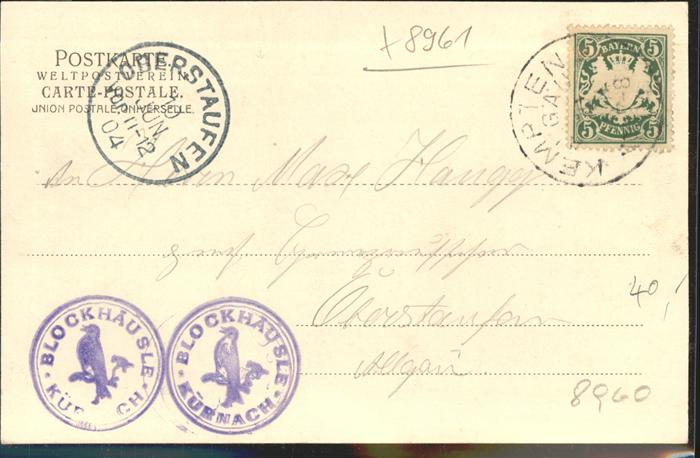 +8961
POSTKARTE.
WELTPOSTVEREIN
CARTE-POSTALE.
UNION POSTALE UNIVERSELLE.
OBERSTAUFEN
JUN.
11-12
04
KEMPTEN
5 BAYERN 5
5 PFENNIG 5
An Herrn Max Haugg
Oberstaufen
Allgäu.
40,
8960
BLOCKHÄUSLE
KÜRNACH
BLOCKHÄUSLE
KÜRNACH